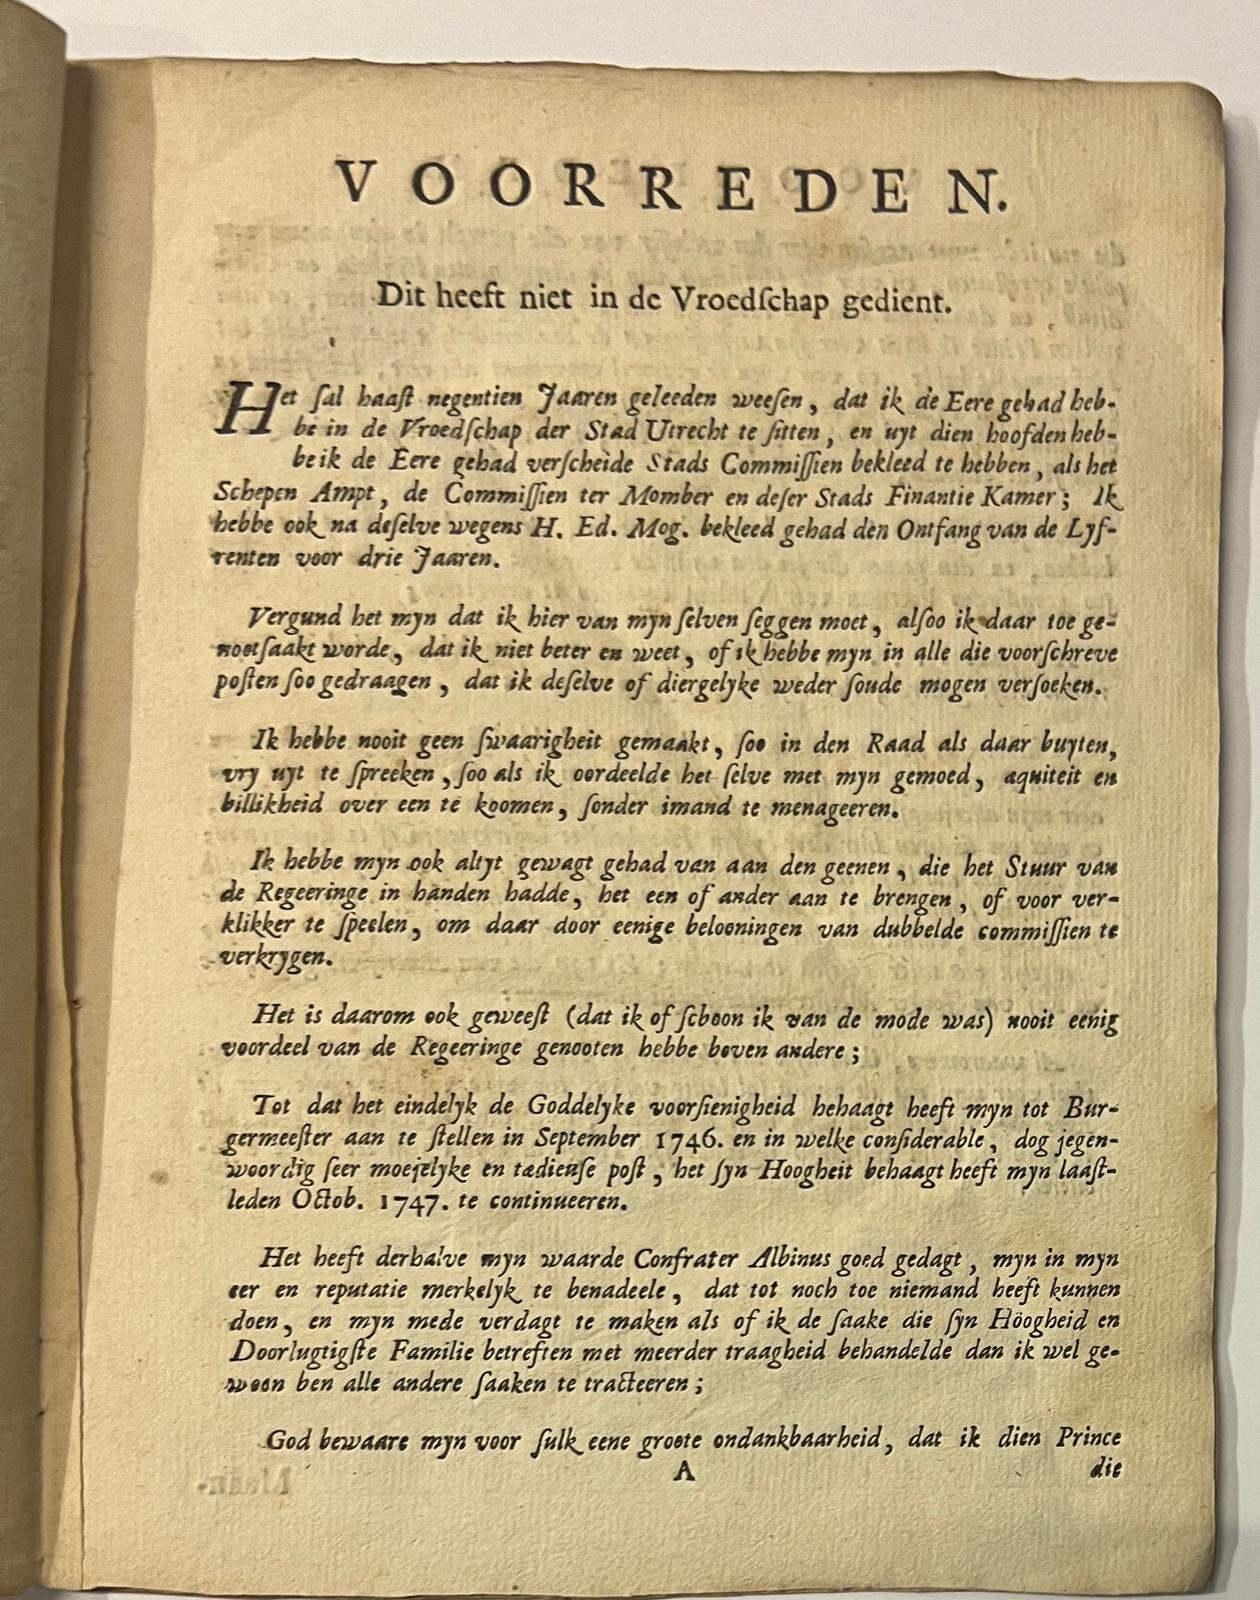 VOORREDEN.
Dit heeft niet in de Vroedſchap gedient.
Het ſal haaſt negentien Jaaren geleeden weeſen, dat ik de Eere gehad heb-
be in de Vroedſchap der Stad Utrecht te ſitten, en uyt dien hoofden heb-
be ik de Eere gehad verſcheide Stads Commiſſien bekleed te hebben, als het
Schepen Ampt, de Commiſſien ter Momber en deſer Stads Finantie Kamer; Ik
hebbe ook na deſelve wegens H. Ed. Mog. bekleed gehad den Ontfang van de Lyf-
renten voor drie Jaaren.
Vergund het myn dat ik hier van myn ſelven ſeggen moet, alſoo ik daar toe ge-
nootſaakt worde, dat ik niet beter en weet, of ik hebbe myn in alle die voorſchreve
poſten ſoo gedraagen, dat ik deſelve of diergelyke weder ſoude mogen verſoeken.
Ik hebbe nooit geen ſwaarigheit gemaakt, ſoo in den Raad als daar buyten,
vry uyt te ſpreeken, ſoo als ik oordeelde het ſelve met myn gemoed, æquiteit en
billikheid over een te koomen, ſonder imand te menageeren.
Ik hebbe myn ook altyt gewagt gehad van aan den geenen, die het Stuur van
de Regeeringe in handen hadde, het een of ander aan te brengen, of voor ver-
klikker te ſpeelen, om daar door eenige belooningen van dubbelde commiſſien te
verkrygen.
Het is daarom ook geweeſt (dat ik of ſchoon ik van de mode was) nooit eenig
voordeel van de Regeeringe genooten hebbe boven andere;
Tot dat het eindelyk de Goddelyke voorſienigheid behaagt heeft myn tot Bur-
germeeſter aan te ſtellen in September 1746. en in welke conſiderable, dog jegen-
woordig ſeer moejelyke en tædieuſe poſt, het ſyn Hoogheit behaagt heeft myn laaſt-
leden Octob. 1747. te continueeren.
Het heeft derhalve myn waarde Confrater Albinus goed gedagt, myn in myn
eer en reputatie merkelyk te benadeele, dat tot noch toe niemand heeft kunnen
doen, en myn mede verdagt te maken als of ik de ſaake die ſyn Höogheid en
Doorlugtigſte Familie betreften met meerder traagheid behandelde dan ik wel ge-
woon ben alle andere ſaaken te tracteeren;
God bewaare myn voor ſulk eene groote ondankbaarheid, dat ik dien Prince
A
die